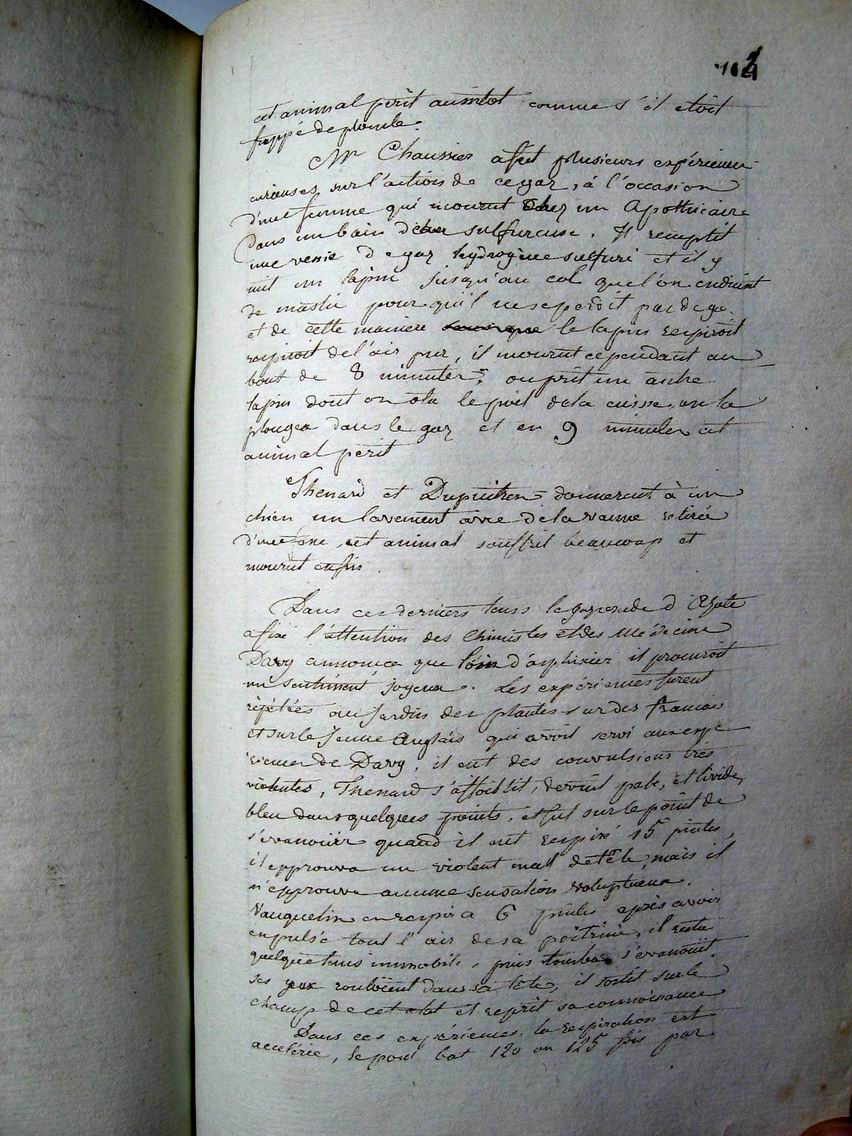 cet animal périt aussitot comme s'il etoit
frappé de plomb.
Mr Chaussier a fait plusieurs expériences
curieuses sur l'action de ce gaz, à l'occasion
d'une femme qui mourut chez un Apothicaire
dans un bain d'eau sulfureuse. Il remplit
une vessie de gaz hydrogène sulfuré et il y
mit un lapin jusqu'au col que l'on enduisit
de mastic pour qu'il ne se perdit pas de gaz
et de cette maniere le lapin respiroit
respiroit de l'air pur, il mourut cependant au
bout de 8 minutes; on prit un autre
lapin dont on ota le poil de la cuisse, on la
plongea dans le gaz et en 9 minutes cet
animal périt
Thenard et Dupuitren donnerent à un
chien un lavement avec de la vanne retirée
cet animal souffrit beaucoup et
mourut enfin.
Dans ces derniers tems le gaz oxide d'Azote
a fixé l'attention des Chimistes et des Médecins
Davy annonca que loin d'asphixier il procuroit
un sentiment joyeux. Les expériences furent
répétées au Jardin des plantes sur des francais
et sur le Jeune Anglais qui avoit servi aux expe
riences de Davy, il eut des convulsions très
violentes, Thenard s'affoiblit, devint pale, et livide,
bleu dans quelques points, et fut sur le point de
s'evanouir quand il eut respiré 15 pintes,
il epprouva un violent mal de tête, mais il
n'epprouva aucune sensation voluptueuse.
Vauquelin en respira 6 pintes après avoir
expulsé tout l'air de sa poitrine, il resta
quelque tems immobile, puis tomba s'evanouit
ses yeux rouloient dans sa tête, il sortit sur le
champ de cet etat et reprit sa connoissance
Dans ces expériences, la respiration est
accélérée, le pouls bat 120 ou 125 fois par